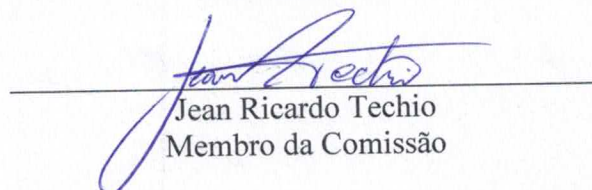 Jean Techio
Jean Ricardo Techio
Membro da Comissão